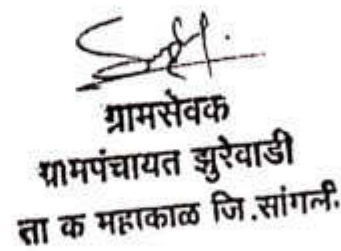 ग्रामसेवक
ग्रामपंचायत झुरेवाडी
ता क महाकाळ जि.सांगली.